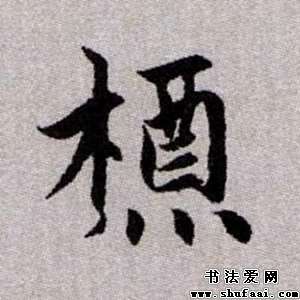 槱
书法爱网
www.shufaai.com